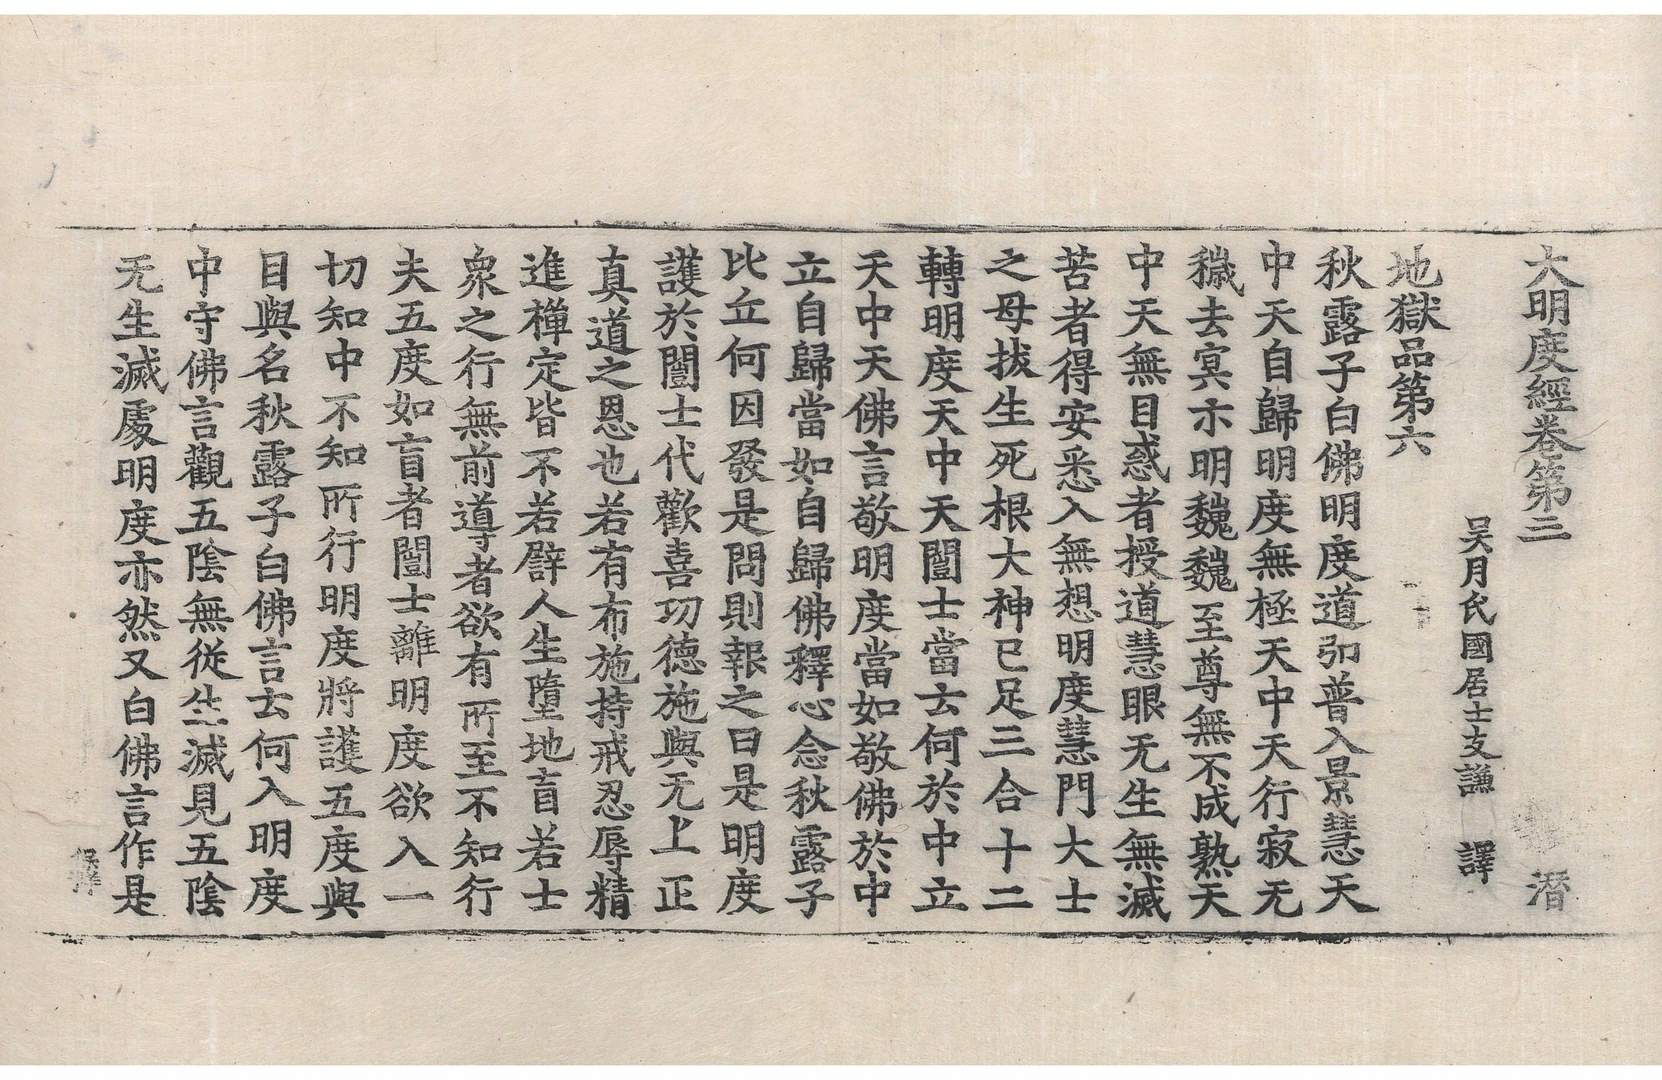 大明度經卷第三 潛
吴月氏國居士支謙 譯
地獄品第六
秋露子白佛明度道弘普入景慧天
中天自歸明度無極天中天行寂无
穢去冥示明巍巍至尊無不成熟天
中天無目惑者授道慧眼无生無滅
苦者得安悉入無想明度慧門大士
之母拔生死根大神已足三合十二
轉明度天中天闓士當云何於中立
天中天佛言敬明度當如敬佛於中
立自歸當如自歸佛釋心念秋露子
比丘何因發是問則報之曰是明度
護於闓士代歡喜功德施與无上正
真道之恩也若有布施持戒忍辱精
進禪定皆不若辟人生墮地盲若士
衆之行無前導者欲有所至不知行
夫五度如盲者闓士離明度欲入一
切知中不知所行明度將護五度與
目與名秋露子白佛言云何入明度
中守佛言觀五陰無從生滅見五陰
无生滅處明度亦然又白佛言作是